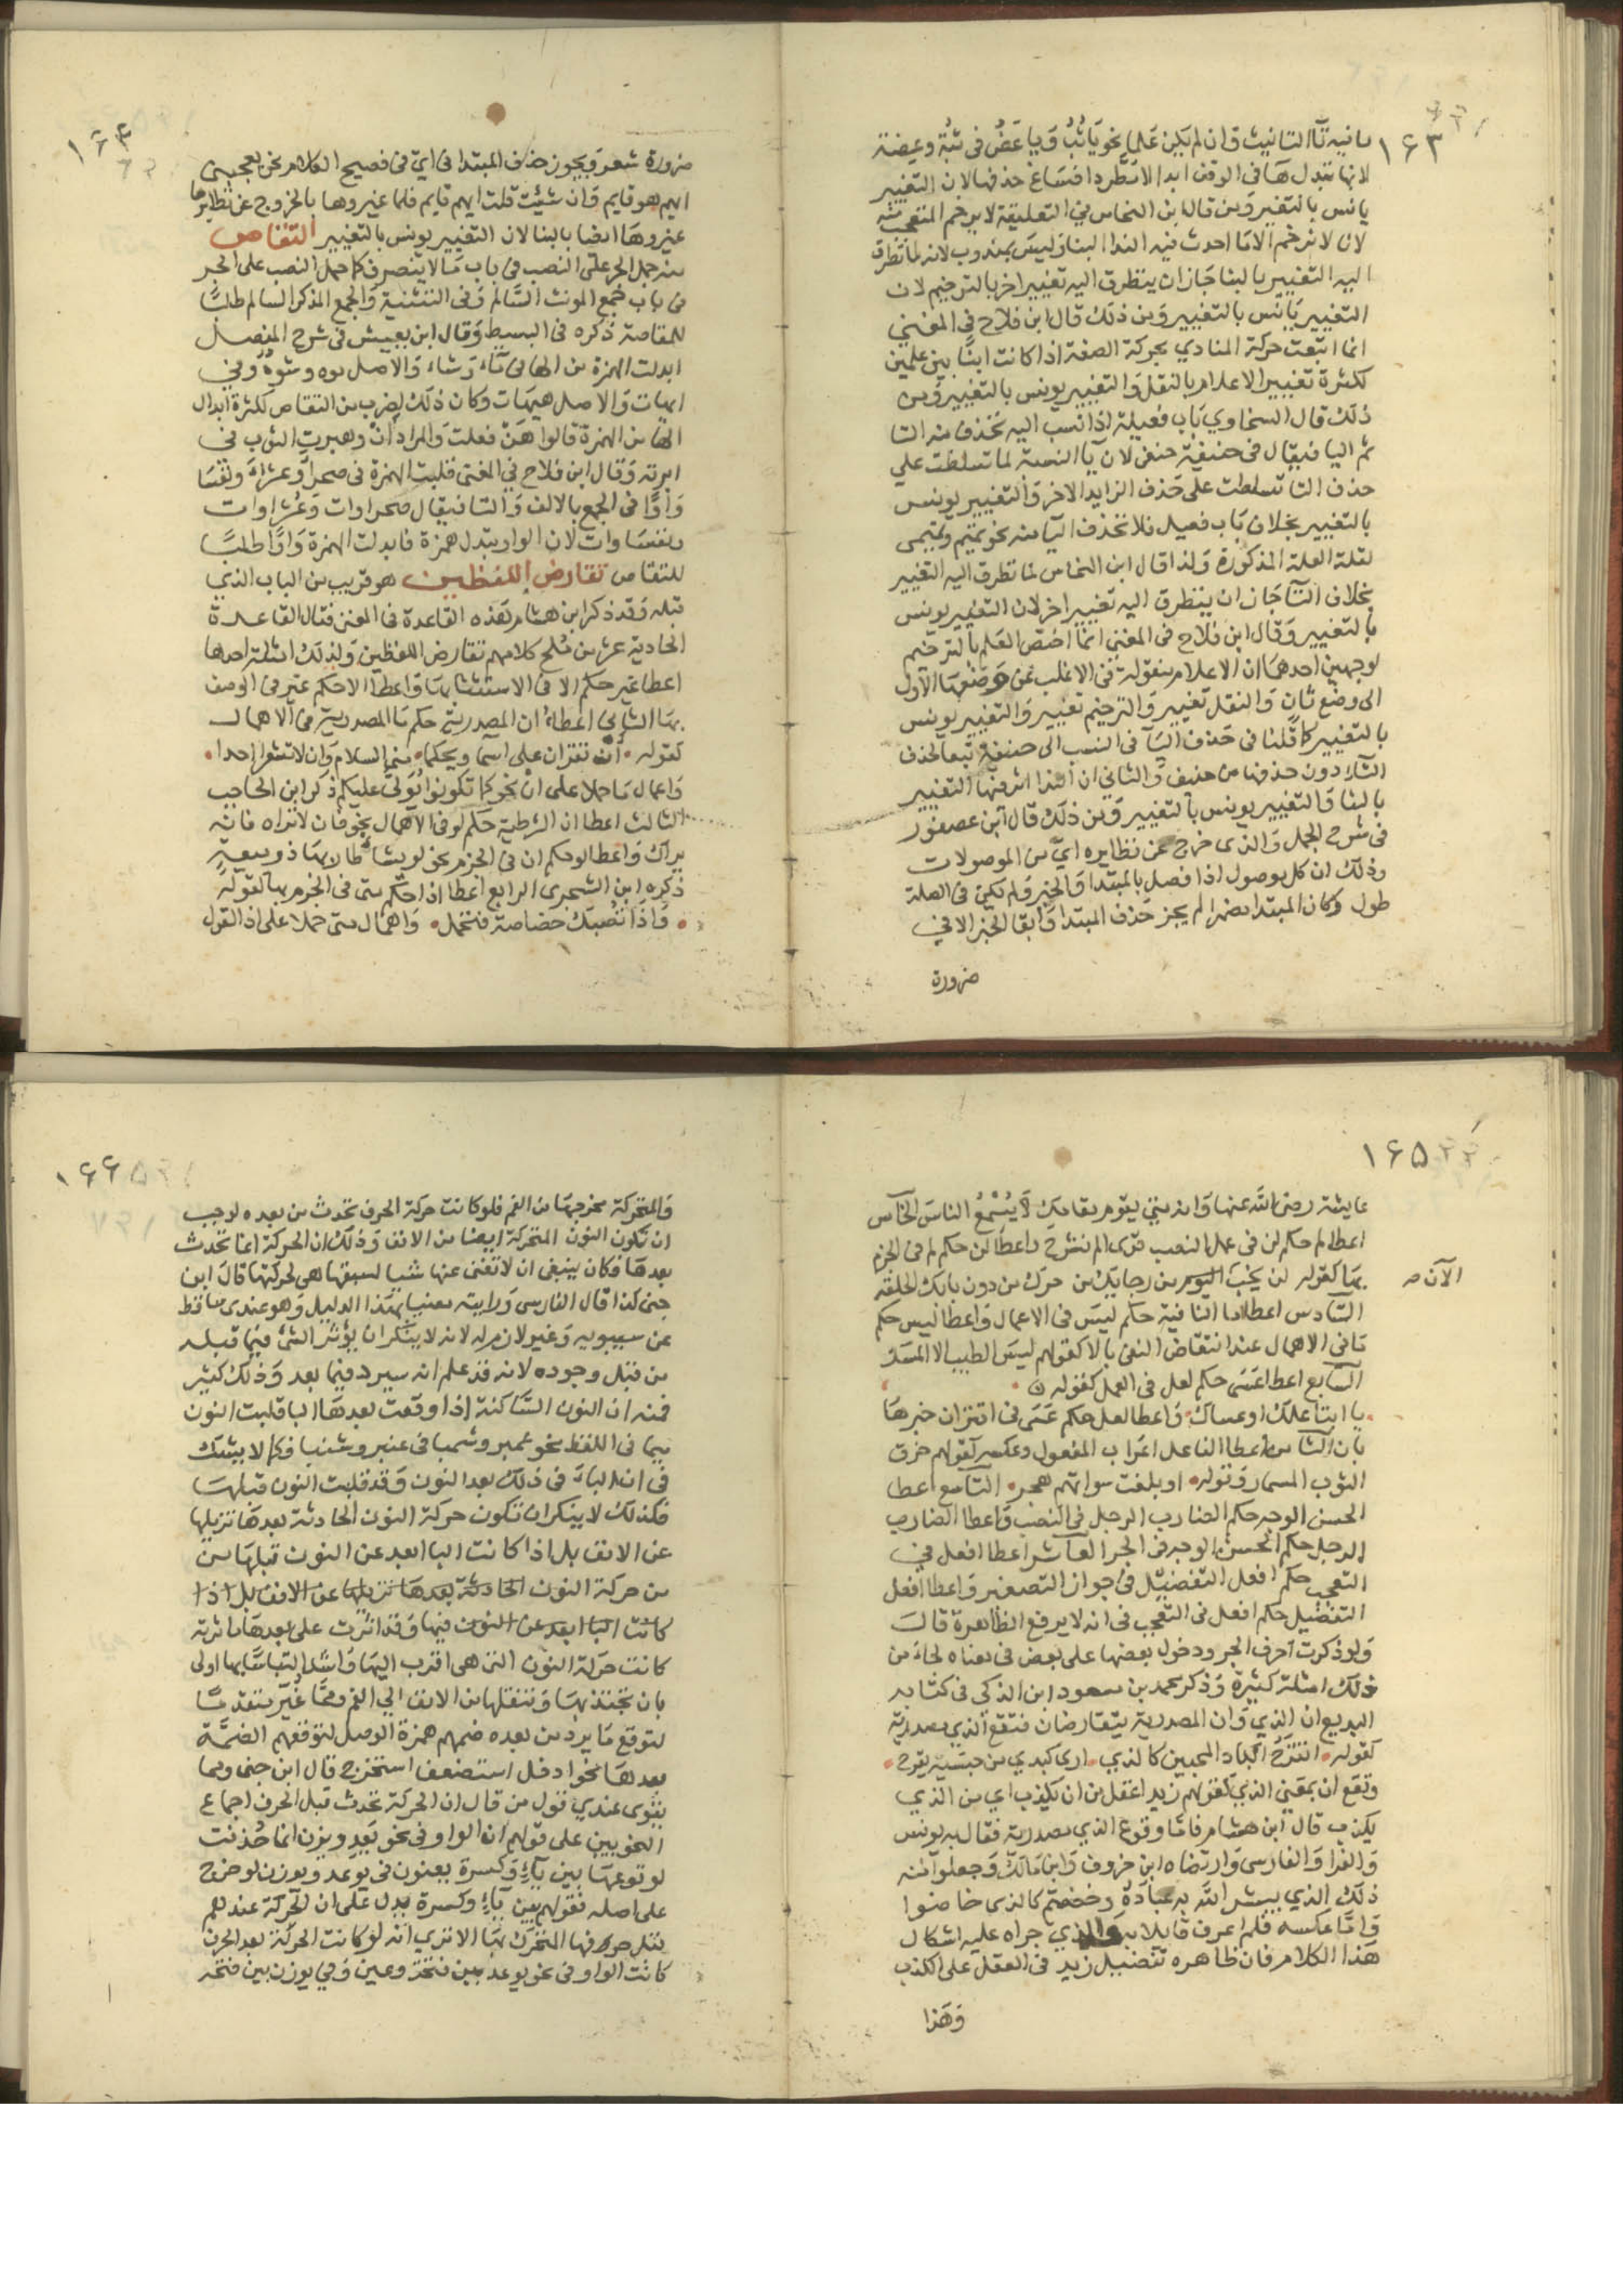 ١٦٣
ما فيه تاء التانيث وان لم يكن علما نحو يا ثُبُ ويا عَضُ فى ثبة وعضة
لانها تبدل هاء فى الوقف ابدا لا مطردا فساغ حذفها لان التغيير
يانس بالتغيير ومن ثم قال ابن النحاس في التعليقة لا يرخم المتعجب منه
لانا لا نرخم الا ما احدث فيه الندا البنا وليس بمندوب لانه لما تطرق
اليه التغيير بالبنا جاز ان يتطرق اليه تغيير اخر بالترخيم لان
التغيير يانس بالتغيير ومن ذلك قال ابن فلاح في المغني
انما اتبعت حركة المنادي بحركة الصفة اذا كانت ابنا بين علمين
لكثرة تغيير الاعلام بالنقل والتغيير يونس بالتغيير ومن
ذلك قال السخاوي باب فعيلة اذا نسب اليه تحذف منه التا
ثم اليا فيقال فى حنيفة حنفى لان يا النسبة لما تسلطت علي
حذف التا تسلطت على حذف الزايد الاخر والتغيير يونس
بالتغيير بخلاف باب فعيل فلا تحذف اليا منه نحو تميم وتميمى
لقلة العلة المذكورة ولذا قال ابن النحاس لما تطرق اليه التغيير
بخلاف التا جاز ان يتطرق اليه تغيير اخر لان التغيير يونس
بالتغيير وقال ابن فلاح فى المغنى انما اختص العلم بالترخيم
لوجهين احدهما ان الاعلام منقولة فى الاغلب عن وضعها الاول
الى وضع ثان والنقل تغيير والترخيم تغيير والتغيير يونس
بالتغيير كما قلنا فى حذف اليا فى النسب الى حنيفة تبعا لحذف
التاء دون حذفها من حنيف والثاني ان الندا اثر فيها التغيير
بالبنا والتغيير يونس بالتغيير ومن ذلك قال ابن عصفور
فى شرح الجمل والذى خرج عن نظايره اي من الموصولات
وذلك ان كل موصول اذا فصل بالمبتدا والخبر ولم تكن فى الصلة
طول وكان المبتدا مضمرا لم يجز حذف المبتدا وابقا الخبر الا في
ضرورة
١٦٤
ضرورة شعر ويجوز حذف المبتدا فى اي فى فصيح الكلام نحو يعجبني
ايهم هو قايم وان شئت قلت ايهم قايم فلما غيروها بالخروج عن نظايرها
غيروها ايضا بالبنا لان التغيير يونس بالتغيير التقاص
منه حمل الجر على النصب فى باب ما لا ينصرف كما حمل النصب على الجر
فى باب جمع المونث السالم وفى التثنية والجمع المذكر السالم طلبا
للمقاصة ذكره فى البسيط وقال ابن يعيش فى شرح المفصل
ابدلت الهمزة من الها فى ماء وشاء والاصل موه وشوه وفي
ايهات والاصل هيهات وكان ذلك لضرب من التقاص لكثرة ابدال
الها من الهمزة قالوا هَنْ فعلت والمراد أنْ وهبرت الثوب فى
ابرته وقال ابن فلاح في المغنى قلبت الهمزة فى صحراء وعشراء ونفسا
واوا فى الجمع بالالف والتا فيقال صحراوات وعشراوات
ونفساوات لان الواو يتبدل همزة فابدلت الهمزة واوا طلبا
للتقاص تقارض اللفظين هو قريب من الباب الذي
قبله وقد ذكر ابن هشام هذه القاعدة فى المغنى فقال القاعدة
الحادية عشر من ملح كلامهم تقارض اللفظين ولذلك امثلة احدها
اعطا غير حكم الا فى الاستثنا بها واعطا الا حكم غير فى الوصف
بها الثانى اعطاء ان المصدرية حكم ما المصدرية فى الاهمال
كقوله • ان تقرآن على اسما ويحكما • منى السلام وان لا تشعرا احدا •
واعمال ما حملا على ان نحو كما تكونوا يُولى عليكم ذكره ابن الحاجب
الثالث اعطا ان الشرطية حكم لو فى الاهمال نحو فان لا تراه فانه
يراك واعطا لو حكم ان فى الجزم نحو لو يشا طار بها ذو ميعة
ذكره ابن الشجرى الرابع اعطا اذا حكم متى فى الجزم بها كقوله
• واذا تصبك خصاصة فتحمل • واهمال متى حملا على اذا كقول
١٦٥
عايشة رضى الله عنها وانه متى يقوم مقامك لا يُسْمِعُ الناس الخامس
اعطا لم حكم لن فى عمل النصب قرى الم نشرح واعطا لن حكم لم فى الجزم
بها كقوله لن يخب اليوم من رجايك من حرك من دون بابك الحلقة
الآن ص
السادس اعطا ما النافية حكم ليس فى الاعمال واعطا ليس حكم
ما فى الاهمال عند انتقاض النفى بالا كقولهم ليس الطيب الا المسك
السابع اعطا عسى حكم لعل فى العمل كقوله
• يا ابتا علك او عساك • واعطا لعل حكم عسى فى اقتران خبرها
بان الثامن اعطا الفاعل اعراب المفعول وعكسه كقولهم خرق
الثوب المسمار وقوله • او بلغت سواتهم هجر • التاسع اعطا
الحسن الوجه حكم الضارب الرجل فى النصب واعطا الضارب
الرجل حكم الحسن الوجه فى الجر العاشر اعطا افعل في
التعجب حكم افعل التفضيل فى جواز التصغير واعطا افعل
التفضيل حكم افعل فى التعجب فى انه لا يرفع الظاهرة قال
ولو ذكرت احرف الجر ودخول بعضها على بعض فى معناه لجاء من
ذلك امثلة كثيرة وذكر محمد بن مسعود ابن الذكى فى كتابه
البديع ان الذي وان المصدرية يتقارضان فتقع الذي مصدرية
كقوله • اتقرح اكباد المحبين كالذي • ارى كبدي من حب مية يقرح •
وتقع ان بمعنى الذي كقولهم زيد اعقل من ان يكذب اي من الذي
يكذب قال ابن هشام فاما وقوع الذي مصدرية فقال به يونس
والفرا والفارسى وارتضاه ابن خروف وابن مالك وجعلوا منه
ذلك الذي يبشر الله به عباده وخضتم كالذى خاضوا
واما عكسه فلم اعرف قايلا به والذي جراه عليه اشكال
هذا الكلام فان ظاهره تفضيل زيد فى العقل على الكذب
وهذا
١٦٦
والمتحركة مخرجها من الفم فلو كانت حركة الحرف تحدث من بعده لوجب
ان تكون النون المتحركة ايضا من الانف وذلك ان الحركة انما تحدث
بعدها فكان ينبغى ان لا تغنى عنها شيا لسبقها هى لحركتها قال ابن
جنى كذا قال الفارسى ورايته معنيا بهذا الدليل وهو عندى ساقط
عن سيبويه وغير لازم له لانه لا ينكر ان يؤثر الشئ فيما قبله
من قبل وجوده لانه قد علم انه سيرد فيما بعد وذلك كثير
فمنه ان النون الساكنة اذا وقعت بعدها البا قلبت النون
ميما فى اللفظ نحو عمبر وشمبا فى عنبر وشنبا فكما لا يشك
فى ان الباء فى ذلك بعد النون وقد قلبت النون قبلها
فكذلك لا ينكر ان تكون حركة النون الحادثة بعدها تزيلها
عن الانف بل اذا كانت البا ابعد عن النون قبلها من
من حركة النون الحادثة بعدها تزيلها عن الانف بل اذا
كانت البا ابعد عن النون فيها وقد اثرت على بعدها ما اثرته
كانت حركة النون التى هى اقرب اليها واشد التباسا بها اولى
بان تجتذبها وتنقلها من الانف الى الفم ومما غُيِّر متقدما
لتوقع ما يرد من بعده ضمهم همزة الوصل لتوقعهم الضمة
بعدها نحو ادخل استضعف استخرج قال ابن جنى ومما
يقوى عندي قول من قال ان الحركة تحدث قبل الحرف اجماع
النحويين على قولهم ان الواو فى نحو يعد ويزن انما حُذفت
لوقوعها بين ياء وكسرة يعنون فى يوعد ويوزن لو خرج
على اصله فقولهم بين ياء وكسرة يدل على ان الحركة عندهم
قبل حرفها المتحرك بها الا ترى انه لو كانت الحركة بعد الحرف
كانت الواو فى نحو يوعد بين فتحة وعين وفى يوزن بين فتحة